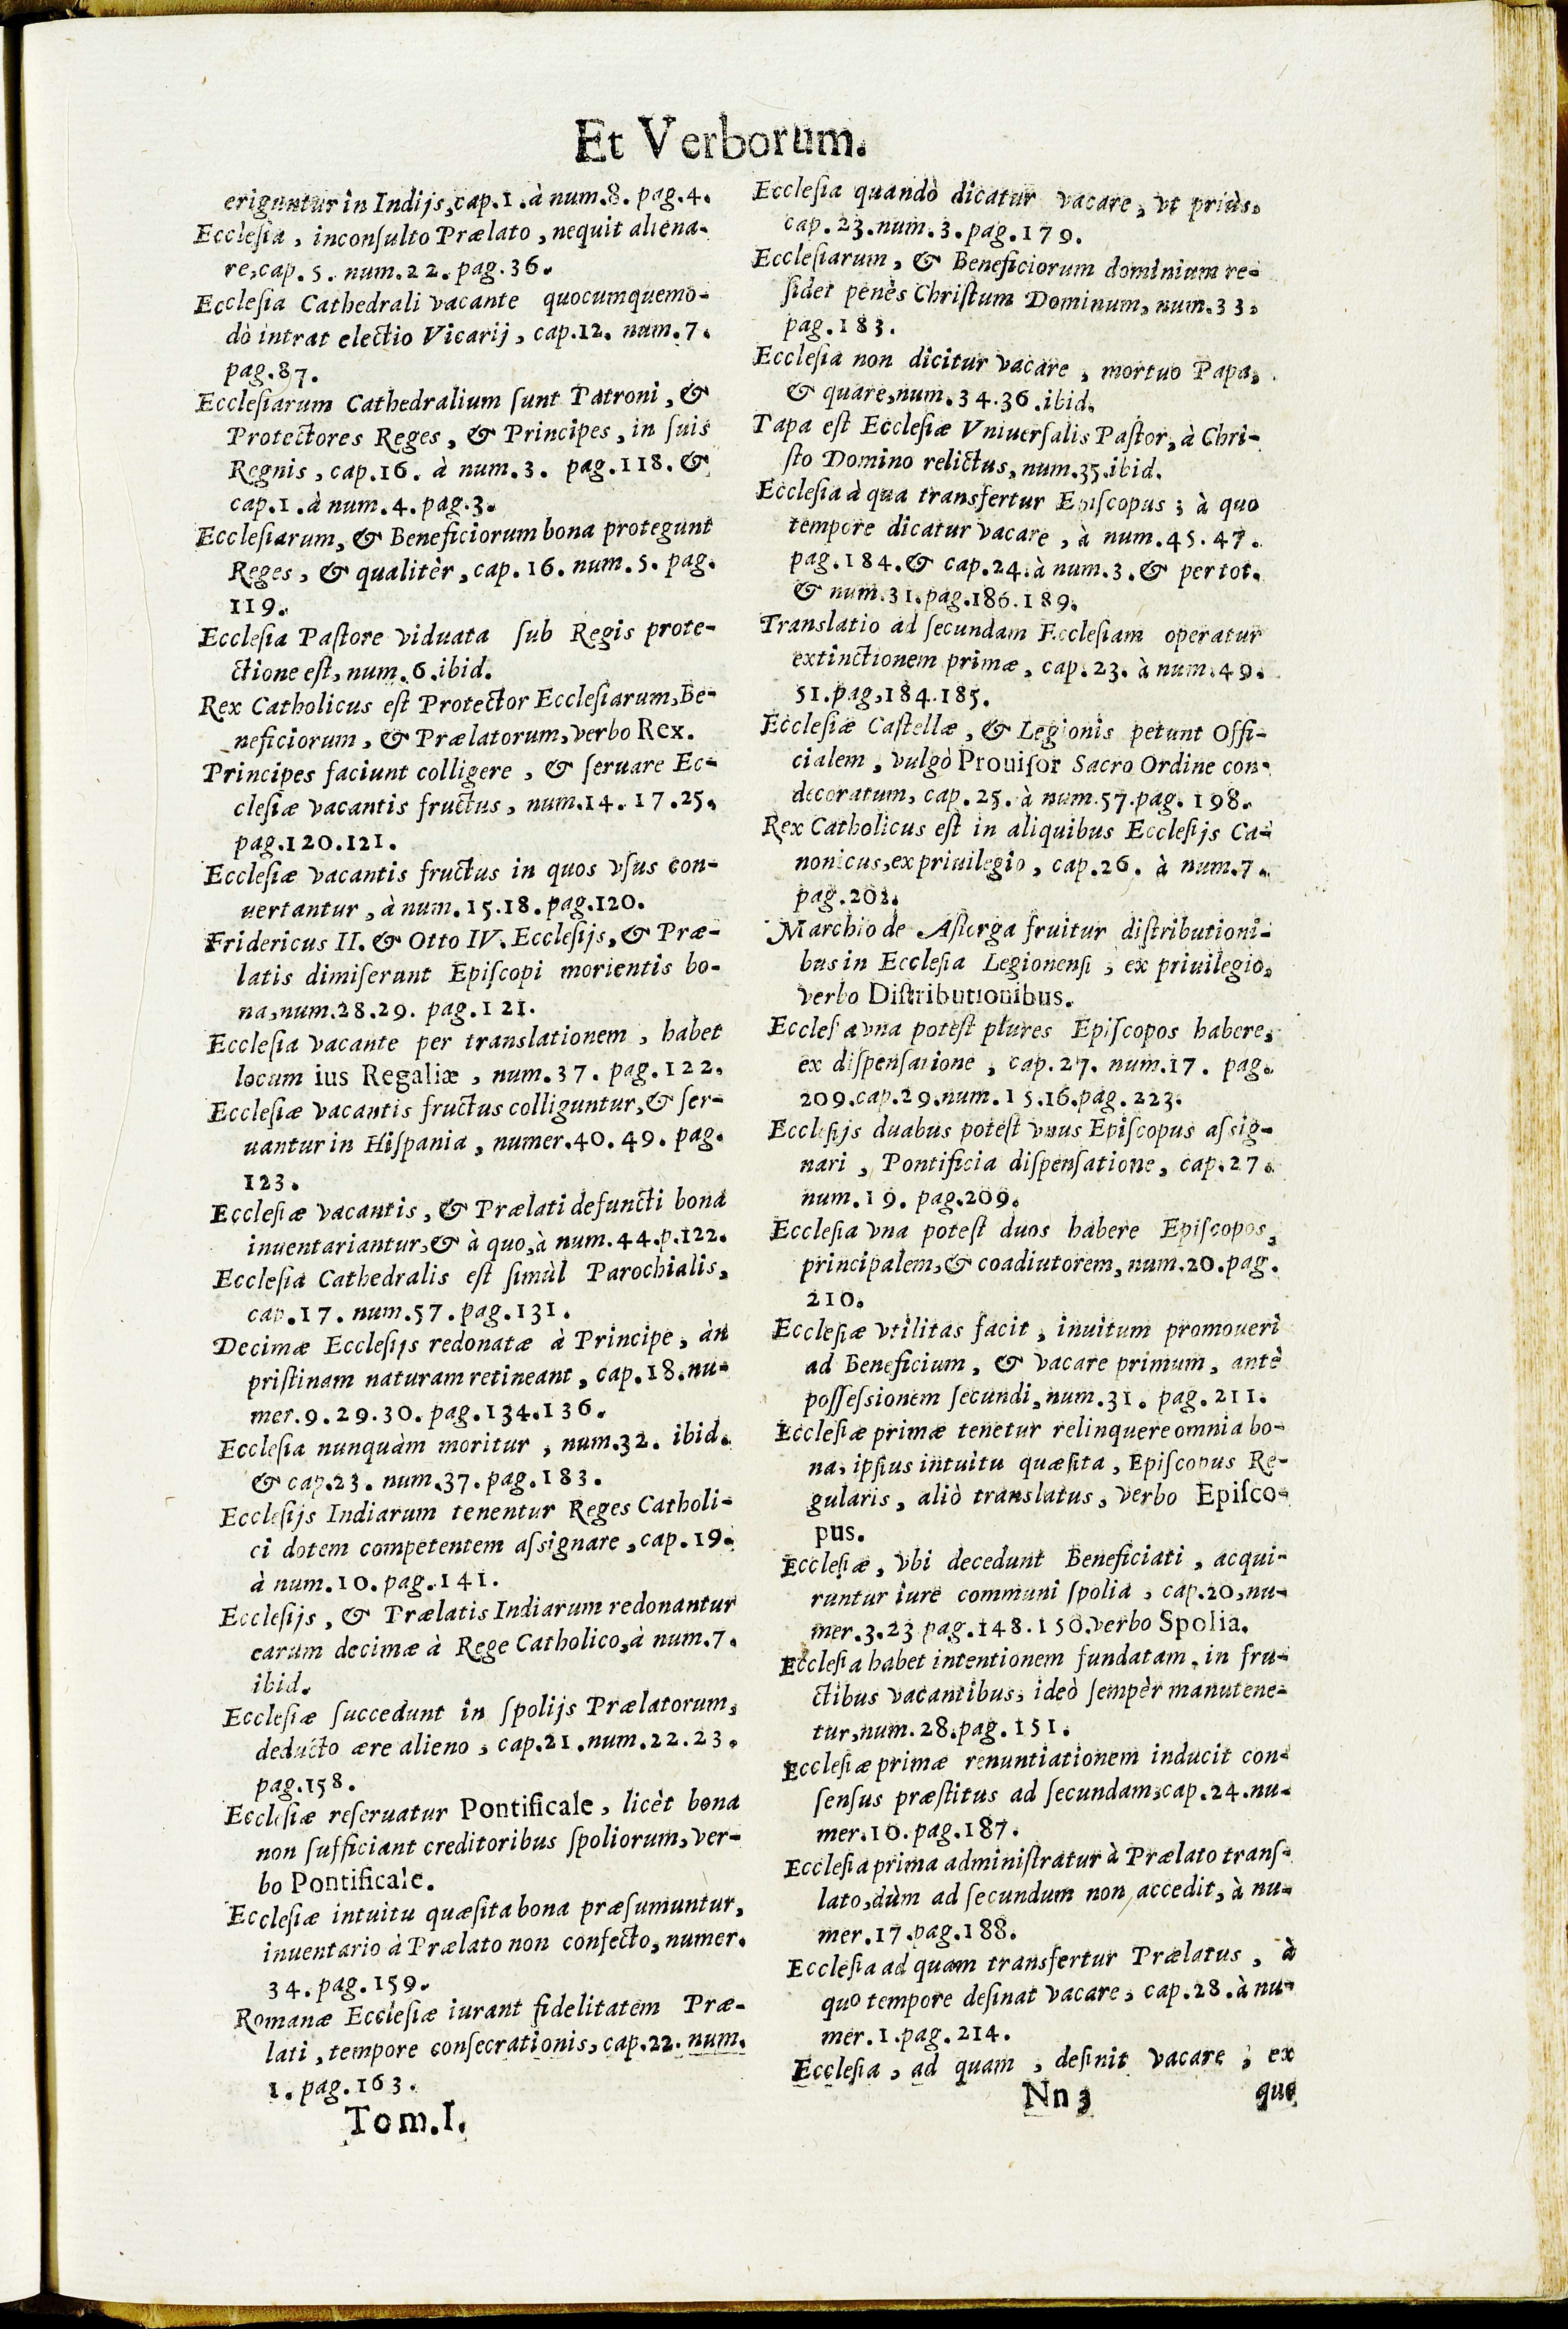 Et Verborum.
eriguntur in Indijs, cap. 1. à num. 8. pag. 4.
Ecclesia, inconsulto Prælato, nequit aliena-
re, cap. 5. num. 22. pag. 36.
Ecclesia Cathedrali vacante quocumquemo-
dò intrat electio Vicarij, cap. 12. num. 7.
pag. 87.
Ecclesiarum Cathedralium sunt Patroni, &
Protectores Reges, & Principes, in suis
Regnis, cap. 16. à num. 3. pag. 118. &
cap. 1. à num. 4. pag. 3.
Ecclesiarum, & Beneficiorum bona protegunt
Reges, & qualitèr, cap. 16. num. 5. pag.
119.
Ecclesia Pastore viduata sub Regis prote-
ctione est, num. 6. ibid.
Rex Catholicus est Protector Ecclesiarum, Be-
neficiorum, & Prælatorum, verbo Rex.
Principes faciunt colligere, & seruare Ec-
clesiæ vacantis fructus, num. 14. 17. 25.
pag. 120. 121.
Ecclesiæ vacantis fructus in quos vsus con-
uertantur, à num. 15. 18. pag. 120.
Fridericus II. & Otto IV. Ecclesijs, & Præ-
latis dimiserunt Episcopi morientis bo-
na, num. 28. 29. pag. 121.
Ecclesia vacante per translationem, habet
locum ius Regaliæ, num. 37. pag. 122.
Ecclesiæ vacantis fructus colliguntur, & ser-
uantur in Hispania, numer. 40. 49. pag.
123.
Ecclesiæ vacantis, & Prælati defuncti bona
inuentariantur, & à quo, à num. 44. p. 122.
Ecclesia Cathedralis est simùl Parochialis,
cap. 17. num. 57. pag. 131.
Decimæ Ecclesijs redonatæ à Principe, àn
pristinam naturam retineant, cap. 18. nu-
mer. 9. 29. 30. pag. 134. 136.
Ecclesia nunquàm moritur, num. 32. ibid.
& cap. 23. num. 37. pag. 183.
Ecclesijs Indiarum tenentur Reges Catholi-
ci dotem competentem assignare, cap. 19.
à num. 10. pag. 141.
Ecclesijs, & Prælatis Indiarum redonantur
earum decimæ à Rege Catholico, à num. 7.
ibid.
Ecclesiæ succedunt in spolijs Prælatorum,
deducto ære alieno, cap. 21. num. 22. 23.
pag. 158.
Ecclesiæ reseruatur Pontificale, licèt bona
non sufficiant creditoribus spoliorum, ver-
bo Pontificale.
Ecclesiæ intuitu quæsita bona præsumuntur,
inuentario à Prælato non confecto, numer.
34. pag. 159.
Romanæ Ecclesiæ iurant fidelitatem Præ-
lati, tempore consecrationis, cap. 22. num.
1. pag. 163.
Tom. I.
Ecclesia quandò dicatur vacare, vt priùs,
cap. 23. num. 3. pag. 179.
Ecclesiarum, & Beneficiorum dominium re-
sidet penès Christum Dominum, num. 33.
pag. 183.
Ecclesia non dicitur vacare, mortuo Papa,
& quare, num. 34. 36. ibid.
Papa est Ecclesiæ Vniuersalis Pastor, à Chri-
sto Domino relictus, num. 35. ibid.
Ecclesia à qua transfertur Episcopus; à quo
tempore dicatur vacare, à num. 45. 47.
pag. 184. & cap. 24. à num. 3. & per tot.
& num. 31. pag. 186. 189.
Translatio ad secundam Ecclesiam operatur
extinctionem primæ, cap. 23. à num. 49.
51. pag, 184. 185.
Ecclesiæ Castellæ, & Legionis petunt Offi-
cialem, vulgò Prouisor Sacro Ordine con-
decoratum, cap. 25. à num. 57. pag. 198.
Rex Catholicus est in aliquibus Ecclesijs Ca-
nonicus, ex priuilegio, cap. 26. à num. 7.
pag. 202.
Marchio de Astorga fruitur distributioni-
bus in Ecclesia Legionensi, ex priuilegio,
verbo Distributionibus.
Ecclesia vna potest plures Episcopos habere,
ex dispensatione, cap. 27. num. 17. pag.
209. cap. 29. num. 15. 16. pag. 223.
Ecclesijs duabus potest vnus Episcopus assig-
nari, Pontificia dispensatione, cap. 27.
num. 19. pag. 209.
Ecclesia vna potest duos habere Episcopos,
principalem, & coadiutorem, num. 20. pag.
210.
Ecclesiæ vtilitas facit, inuitum promoueri
ad Beneficium, & vacare primum, antè
possessionem secundi, num. 31. pag. 211.
Ecclesiæ primæ tenetur relinquere omnia bo-
na, ipsius intuitu quæsita, Episcopus Re-
gularis, aliò translatus, verbo Episco-
pus.
Ecclesiæ, vbi decedunt Beneficiati, acqui-
runtur iure communi spolia, cap. 20, nu-
mer. 3. 23 pag. 148. 150. verbo Spolia.
Ecclesia habet intentionem fundatam, in fru-
ctibus vacantibus, ideò sempèr manutene-
tur, num. 28. pag. 151.
Ecclesiæ primæ renuntiationem inducit con-
sensus præstitus ad secundam, cap. 24. nu-
mer. 10. pag. 187.
Ecclesia prima administratur à Prælato trans-
lato, dùm ad secundum non accedit, à nu-
mer. 17. pag. 188.
Ecclesia ad quam transfertur Prælatus, à
quo tempore desinat vacare, cap. 28. à nu-
mer. 1. pag. 214.
Ecclesia, ad quam, desinit vacare, ex
Nn 3 quo